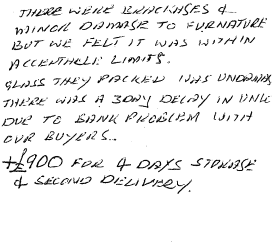 THERE WERE BREAKAGES &
MINOR DAMAGE TO FURNATURE
BUT WE FELT IT WAS WITHIN
ACCEPTABLE LIMITS.
GLASS THEY PACKED WAS UNDAMAG
THERE WAS A 3 DAY DELAY IN UNL
DUE TO BANK PROBLEM WITH
OUR BUYERS..
+£900 FOR 4 DAYS STORAGE
& SECOND DELIVERY.